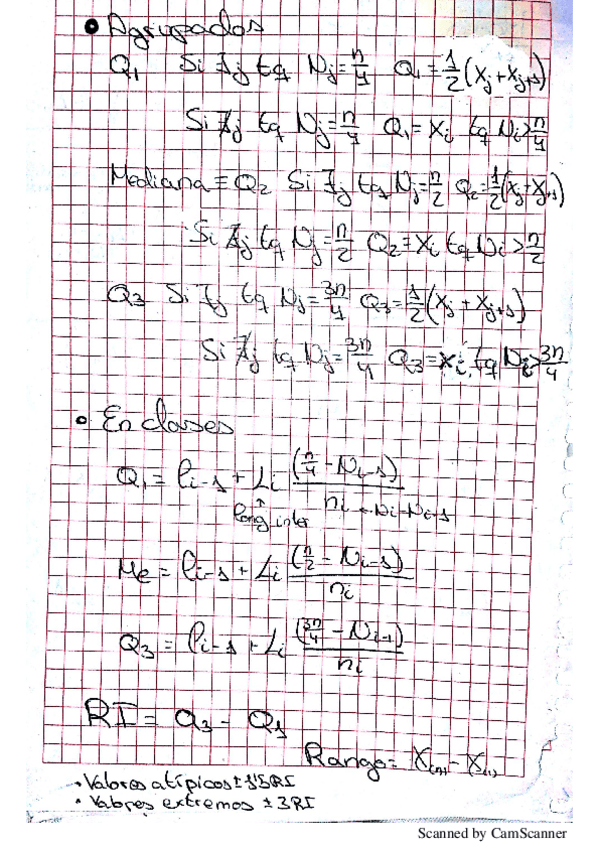 • Agrupados
Q₁ Si ∃j tq Nj = n/4 Q₁ = 1/2 (xj + xj+1)
Si ∄j tq Nj = n/4 Q₁ = xi tq Ni > n/4
Mediana ≡ Q₂ Si ∃j tq Nj = n/2 Q₂ = 1/2 (xj + xj+1)
Si ∄j tq Nj = n/2 Q₂ = xi tq Ni > n/2
Q₃ Si ∃j tq Nj = 3n/4 Q₃ = 1/2 (xj + xj+1)
Si ∄j tq Nj = 3n/4 Q₃ = xi, tq Ni > 3n/4
• En clases
Q₁ = li-1 + Li (n/4 - Ni-1) / ni ← Ni - Ni-1
↑
long. inter
Me = li-1 + Li (n/2 - Ni-1) / ni
Q₃ = li-1 + Li (3n/4 - Ni-1) / ni
RI = Q₃ - Q₁
Rango = X(n) - X(1)
• Valores atípicos ± 1'5RI
• Valores extremos ± 3RI
Scanned by CamScanner